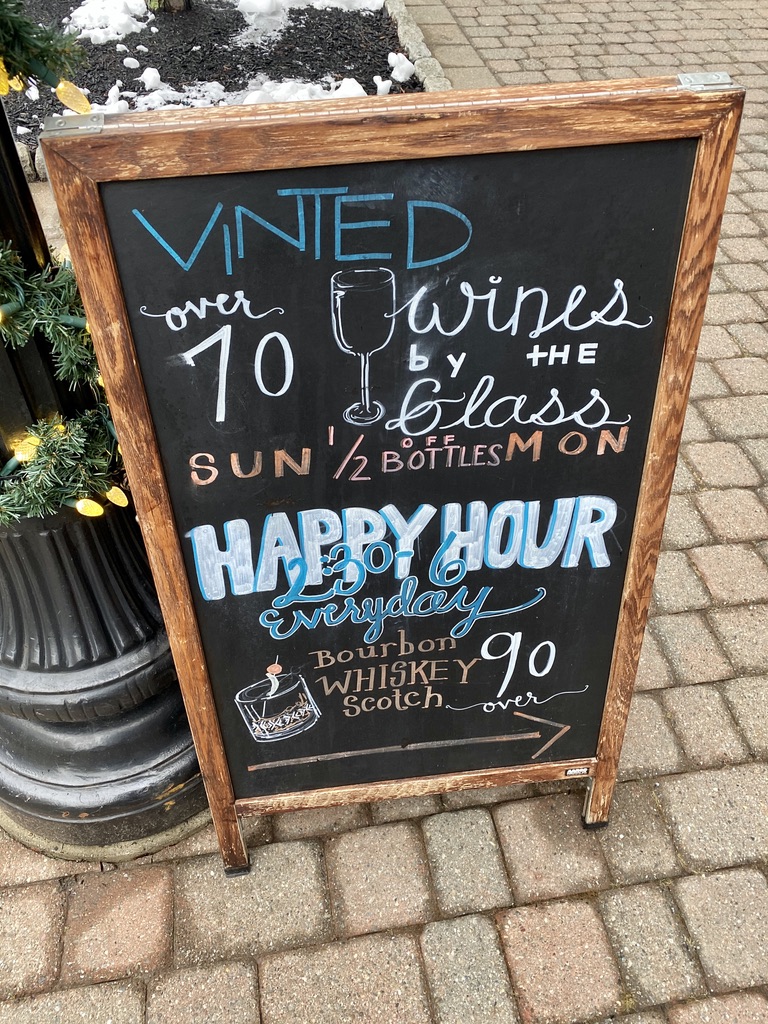 VINTED
over 70 wines
by THE
Glass
SUN 1/2 OFF BOTTLES MON
HAPPY HOUR
2:30-6
Everyday
Bourbon
WHISKEY 90
Scotch over